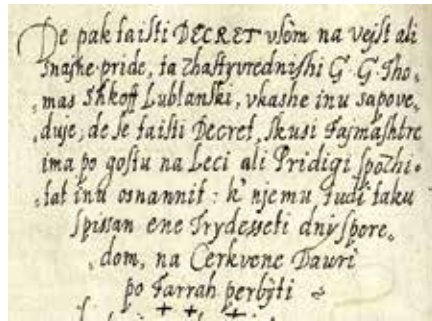 De pak taiſti DECRET vſòm na vejſt ali
snaſhe pride, ta zhaſtyvrednishi G. G. Tho„
„mas Shkoff Lublanſki, vkashe inu sapove„
„duje, de ſe taiſti Decret, ſkusi Fajmaſhtre
ima po goſtu na Leci ali Pridigi ſpozhi„
„tat inu osnannit : k' njemu tudi taku
ſpiſſan ene Trydeſſeti dny ſpore„
„dom, na Cerkvene Dauri
po Farrah perbyti